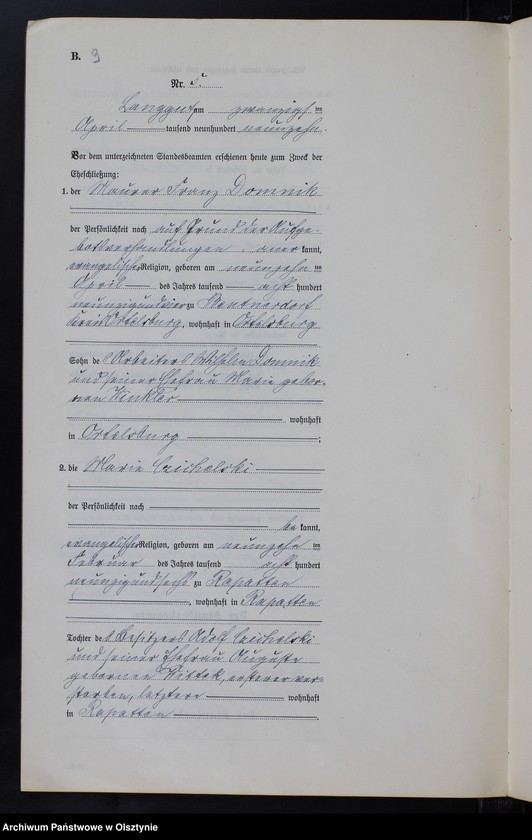 B. 9
Nr. 5
Langgut am zwanzigsten
April tausend neunhundert neunzehn.
Vor dem unterzeichneten Standesbeamten erschienen heute zum Zweck der
Eheschließung:
1. der Maurer Franz Domnik
der Persönlichkeit nach auf Grund der Aufge-
botsverhandlungen anerkannt,
evangelischer Religion, geboren am neunzehnten
April des Jahres tausend acht hundert
neunzig und vier zu
Kreis Ortelsburg, wohnhaft in Ortelsburg
Sohn des Arbeiters Wilhelm Domnik
und seiner Ehefrau Marie gebor-
nen Winkler
wohnhaft
in Ortelsburg ;
2. die Marie Cichelski
der Persönlichkeit nach
bekannt,
evangelischer Religion, geboren am neunzehnten
Februar des Jahres tausend acht hundert
neunzig und sechs zu Rapatten
, wohnhaft in Rapatten
Tochter des Besitzers Adolf Cichelski
und seiner Ehefrau Auguste
gebornen Wittek, ersterer ver-
storben, letztere wohnhaft
in Rapatten .
Archiwum Państwowe w Olsztynie